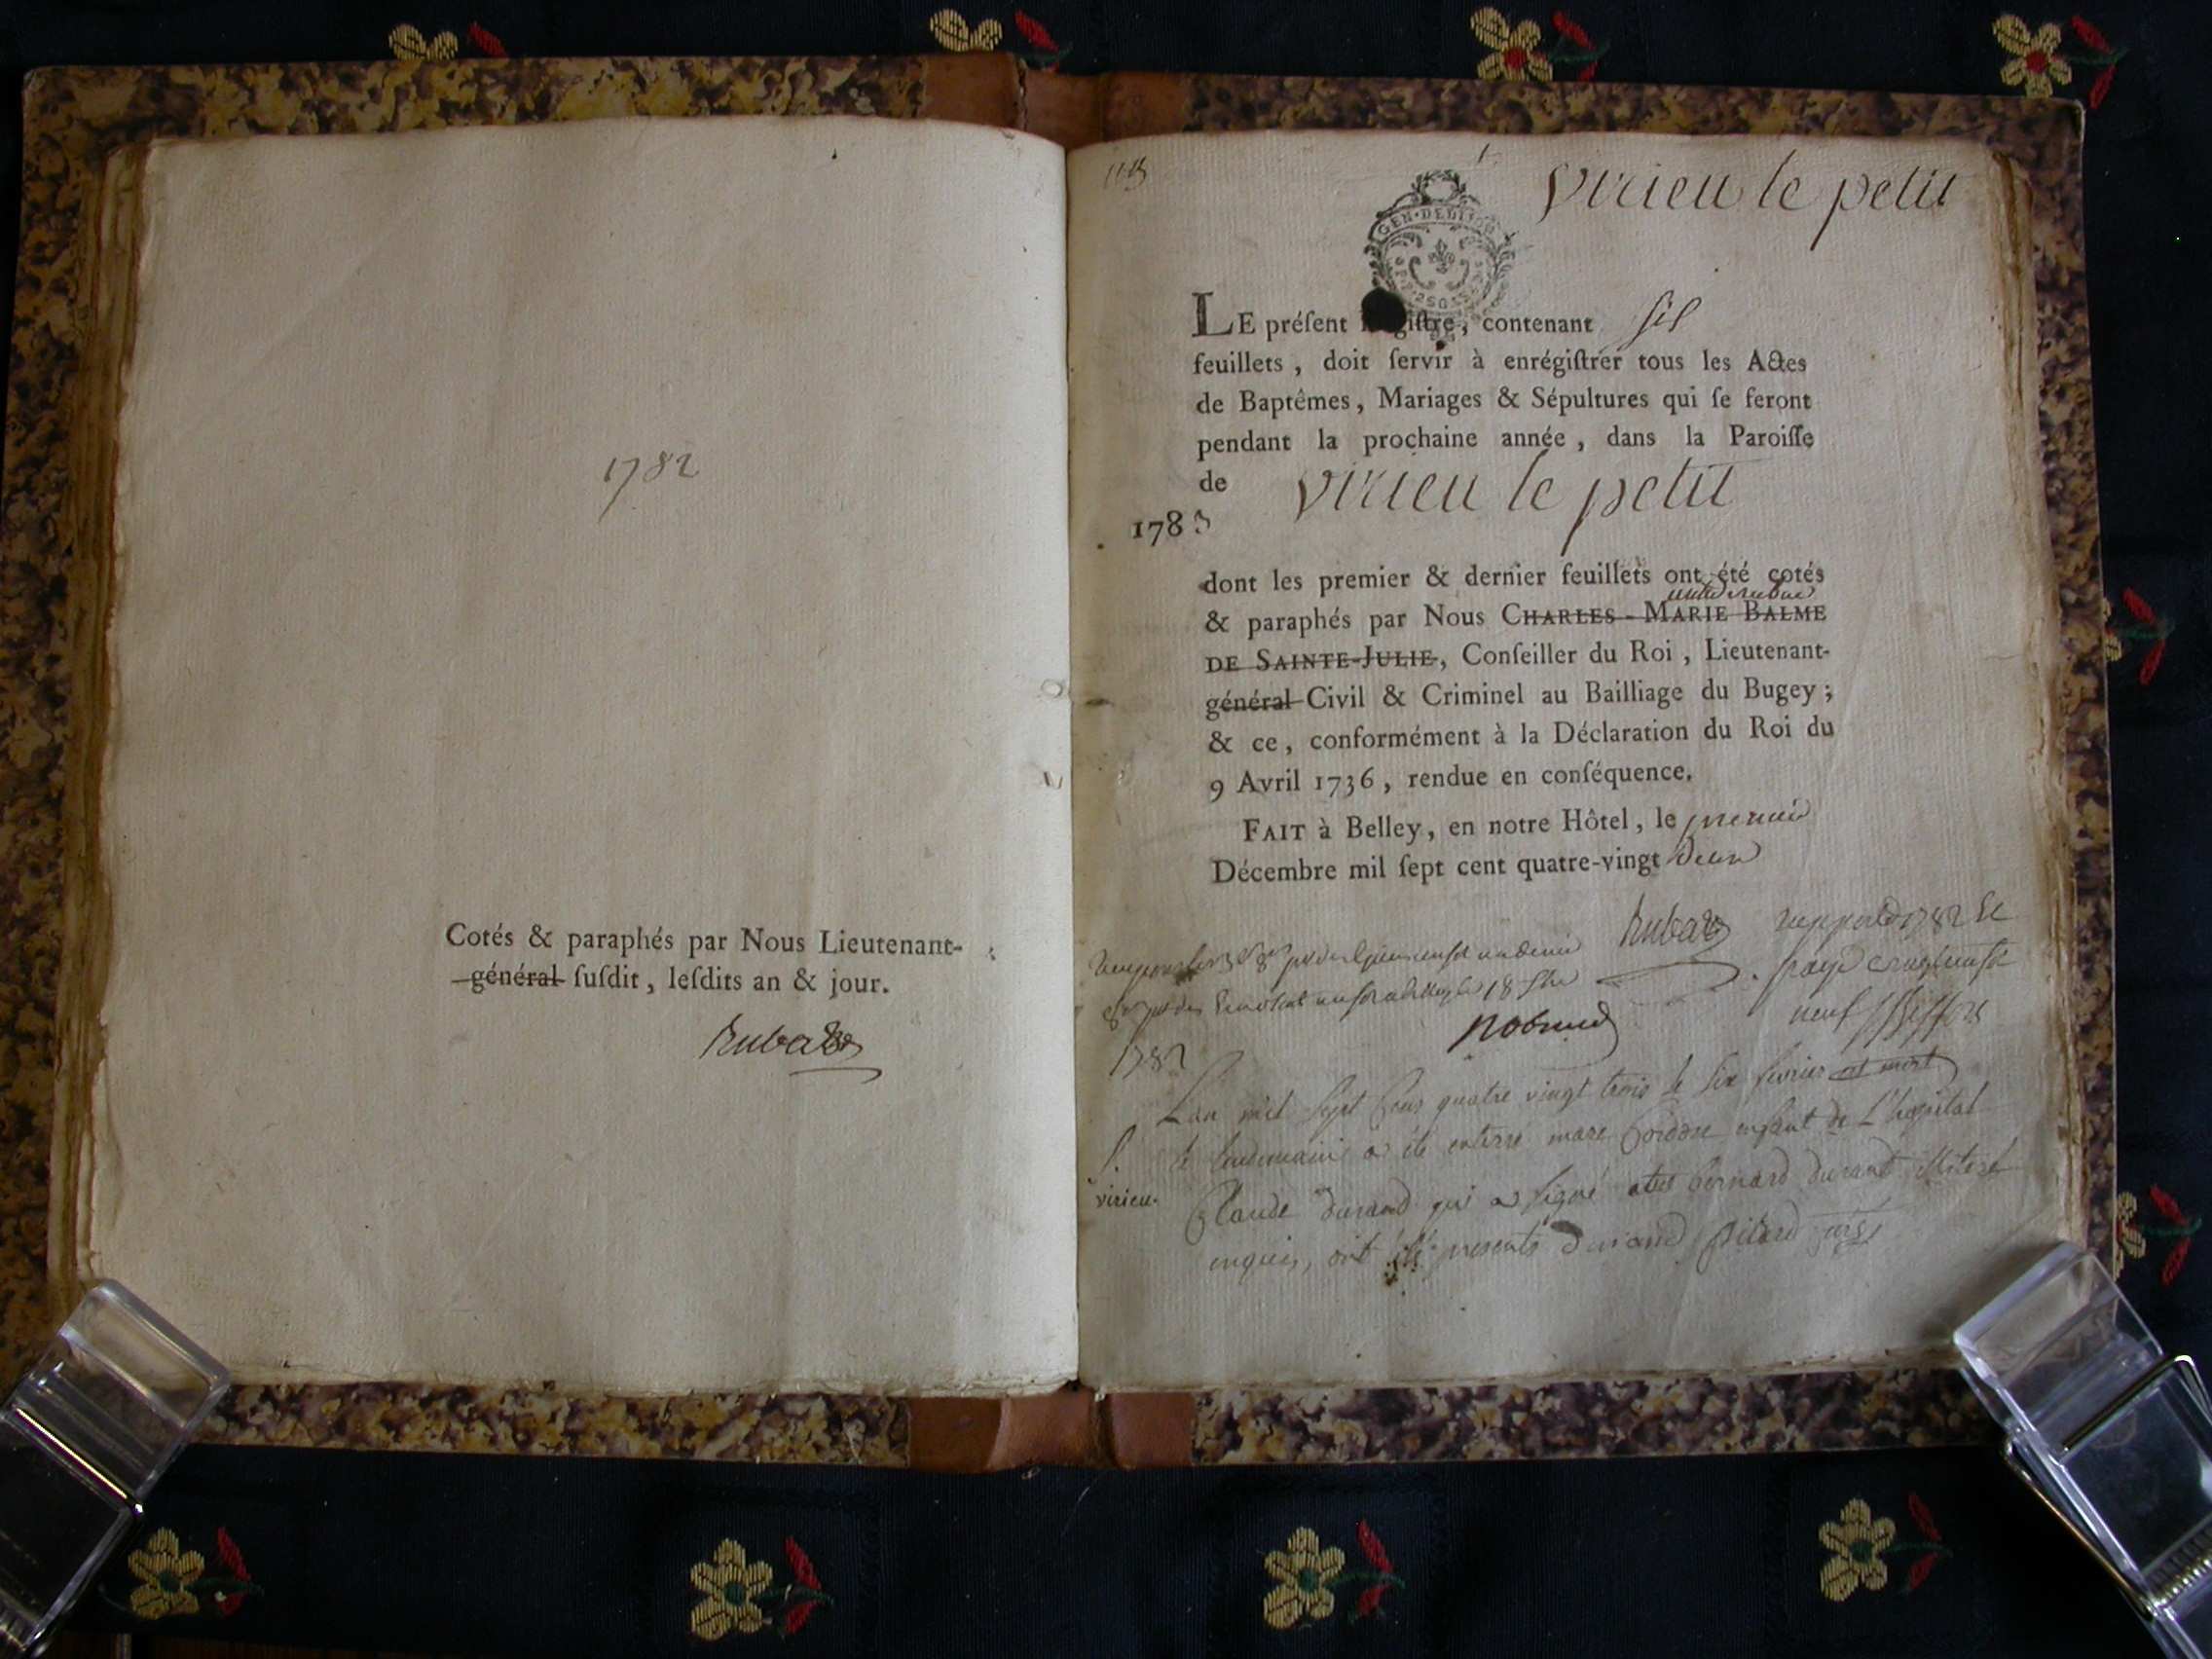 1782
Cotés & paraphés par Nous Lieutenant-
général ſuſdit, leſdits an & jour.
Rubat
virieu le petit
GEN·DEDI
LE préſent giſtre, contenant six
feuillets, doit ſervir à enrégiſtrer tous les Actes
de Baptêmes, Mariages & Sépultures qui ſe feront
pendant la prochaine année, dans la Paroiſſe
de virieu le petit
1783
dont les premier & dernier feuillets ont été cotés
& paraphés par Nous CHARLES-MARIE BALME
DE SAINTE-JULIE, Conſeiller du Roi, Lieutenant-
général Civil & Criminel au Bailliage du Bugey;
& ce, conformément à la Déclaration du Roi du
9 Avril 1736, rendue en conſéquence.
FAIT à Belley, en notre Hôtel, le premier
Décembre mil ſept cent quatre-vingt deux
Rubat 1782
neuf
1782
L'an mil sept cens quatre vingt trois le six fevrier est mort
le lendemain a été enterré marc enfant de L'hopital
S.
virieu.
Claude durand qui a signé bernard durand
enquis, ont été presents Durand Pitard curé